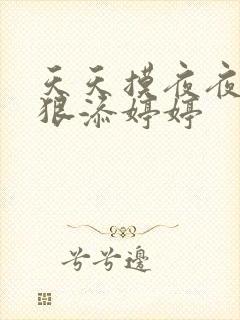 天天摸夜夜
狠添婷婷
兮兮邊